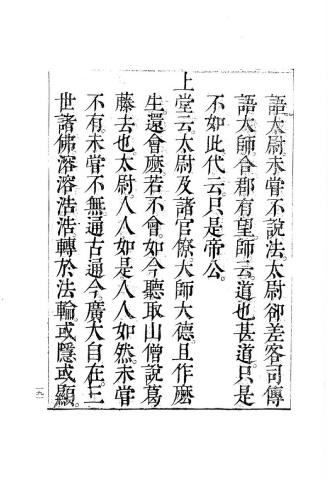 語太尉未甞不說法。太尉卻差客司傳
語大師。合郡有望。師云。道也甚道。只是
不如此代云。只是帝公。
上堂云。太尉及諸官僚大師大德。且作麽
生還會麽。若不會。如今聽取山僧說葛
藤去也。太尉。人人如是。人人如然。未甞
不有。未甞不無。通古通今。廣大自在。三
世諸佛。溶溶浩浩。轉於法輪。或隱或顯。
一九